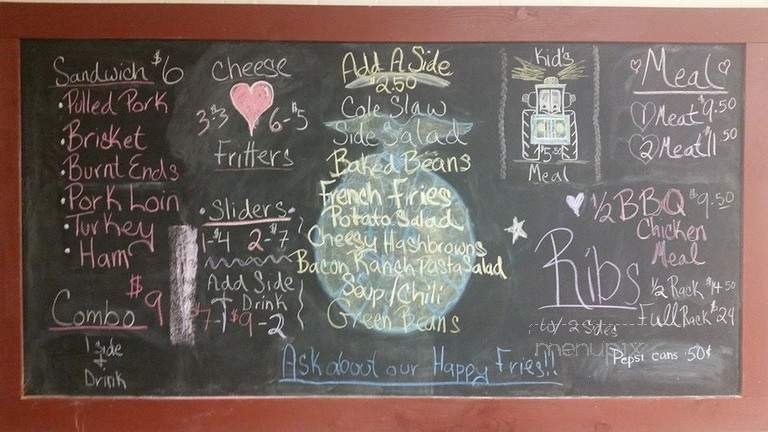 Sandwich $6
• Pulled Pork
• Brisket
• Burnt Ends
• Pork Loin
• Turkey
• Ham
Combo $9
1 side
+
Drink
Cheese
3-$3 6-$5
Fritters
• Sliders •
1-$4 2-$7
Add Side
+ Drink
$7-1 $9-2
Add A Side
$2.50
Cole Slaw
Side Salad
Baked Beans
French Firies
Potato Salad
Cheesy Hashbrowns
Bacon Ranch Pasta Salad
Soup/Chili
Green Beans
Ask about our Happy Fries!!
Kid's
$5.50
Meal
Meal
1 Meat $9.50
2 Meat $11.50
1/2 BBQ $9.50
Chicken
Meal
Ribs
1/2 Rack $14.50
Full Rack $24
w/ 2 sides
menupix
Pepsi cans .50¢